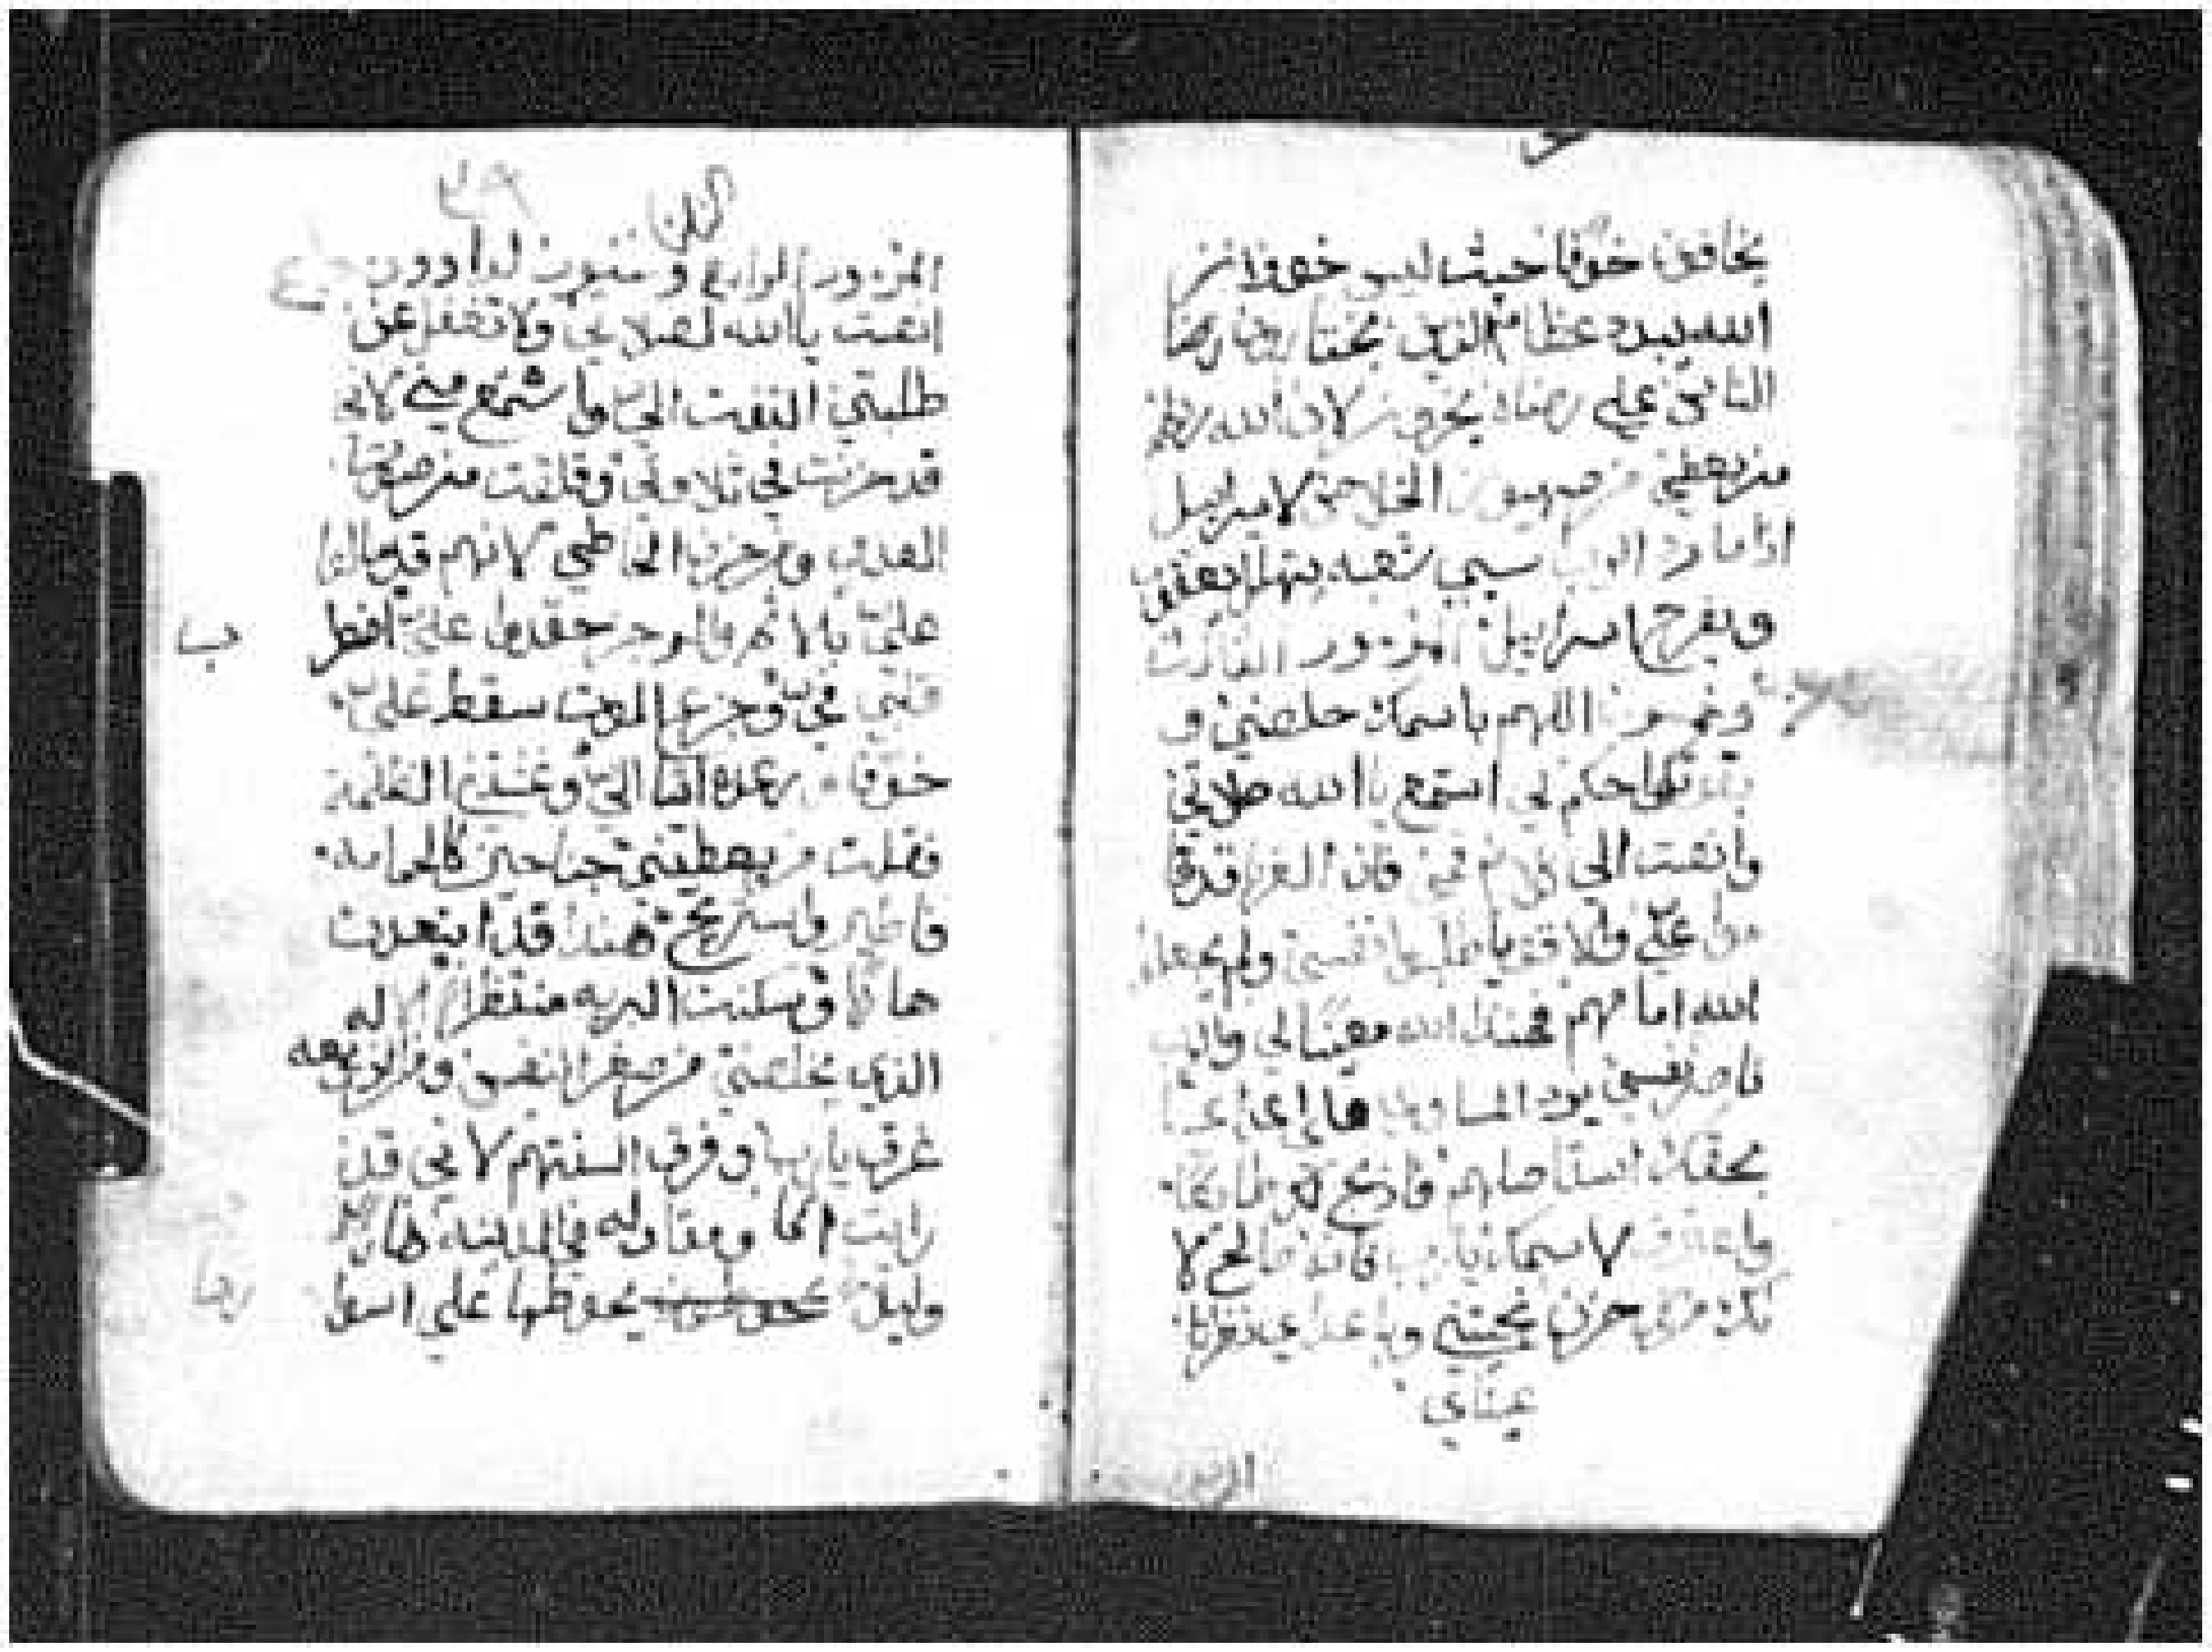 يخافون خوفا حيث ليس خوف لان
الله يبدد عظام الذين يختارون رضا
الناس علي رضاه يخزون لان الله رذلهم
من يعطي من صهيون الخلاص لاسراييل
اذا ما رد الرب سبي شعبه يتهلل يعقوب
ويفرح اسراييل المزمور الثالث
وخمسون اللهم باسمك خلصني و
بقوتك احكم لي استمع يا الله صلاتي
وانصت الي كلام فمي فان الغربا قد قا
موا علي والاقويا طلبوا نفسي ولم يجعلوا
الله امامهم هوذا الله معينا لي والرب
ناصر نفسي يرد المساوي علي اعداي
بحقك استاصلهم فاذبح لك طايعا
واعترف لاسمك يا رب فانه صالح لا
نك من كل حزن نجيتني وباعداي نظرتا
عيناي
المزمور الرابع وخمسون لداوود
انصت يا الله لصلاتي ولا تغفل عن
طلبتي التفت الي واستمع مني لاني
قد حزنت في تلاوتي وقلقت من صوت
العدو ومن حزن الخاطي لانهم قد مالوا
علي بالاثم وبالرجز حقدوا علي اضطر
ب
قلبي في وجزع الموت سقط علي
خوف ورعده اتيا الي وغشتني الظلمة
فقلت من يعطيني جناحين كالحمامه
فاطير واستريح هوذا قد ابتعدت
هاربا وسكنت البريه منتظرا لله
الذي يخلصني من صغر النفس ومن الزوبعه
غرق يا رب وفرق السنتهم لاني قد
رايت اثما ومقاوله في المدينة نهارا
وليلا يحوطها علي اسوا
رها